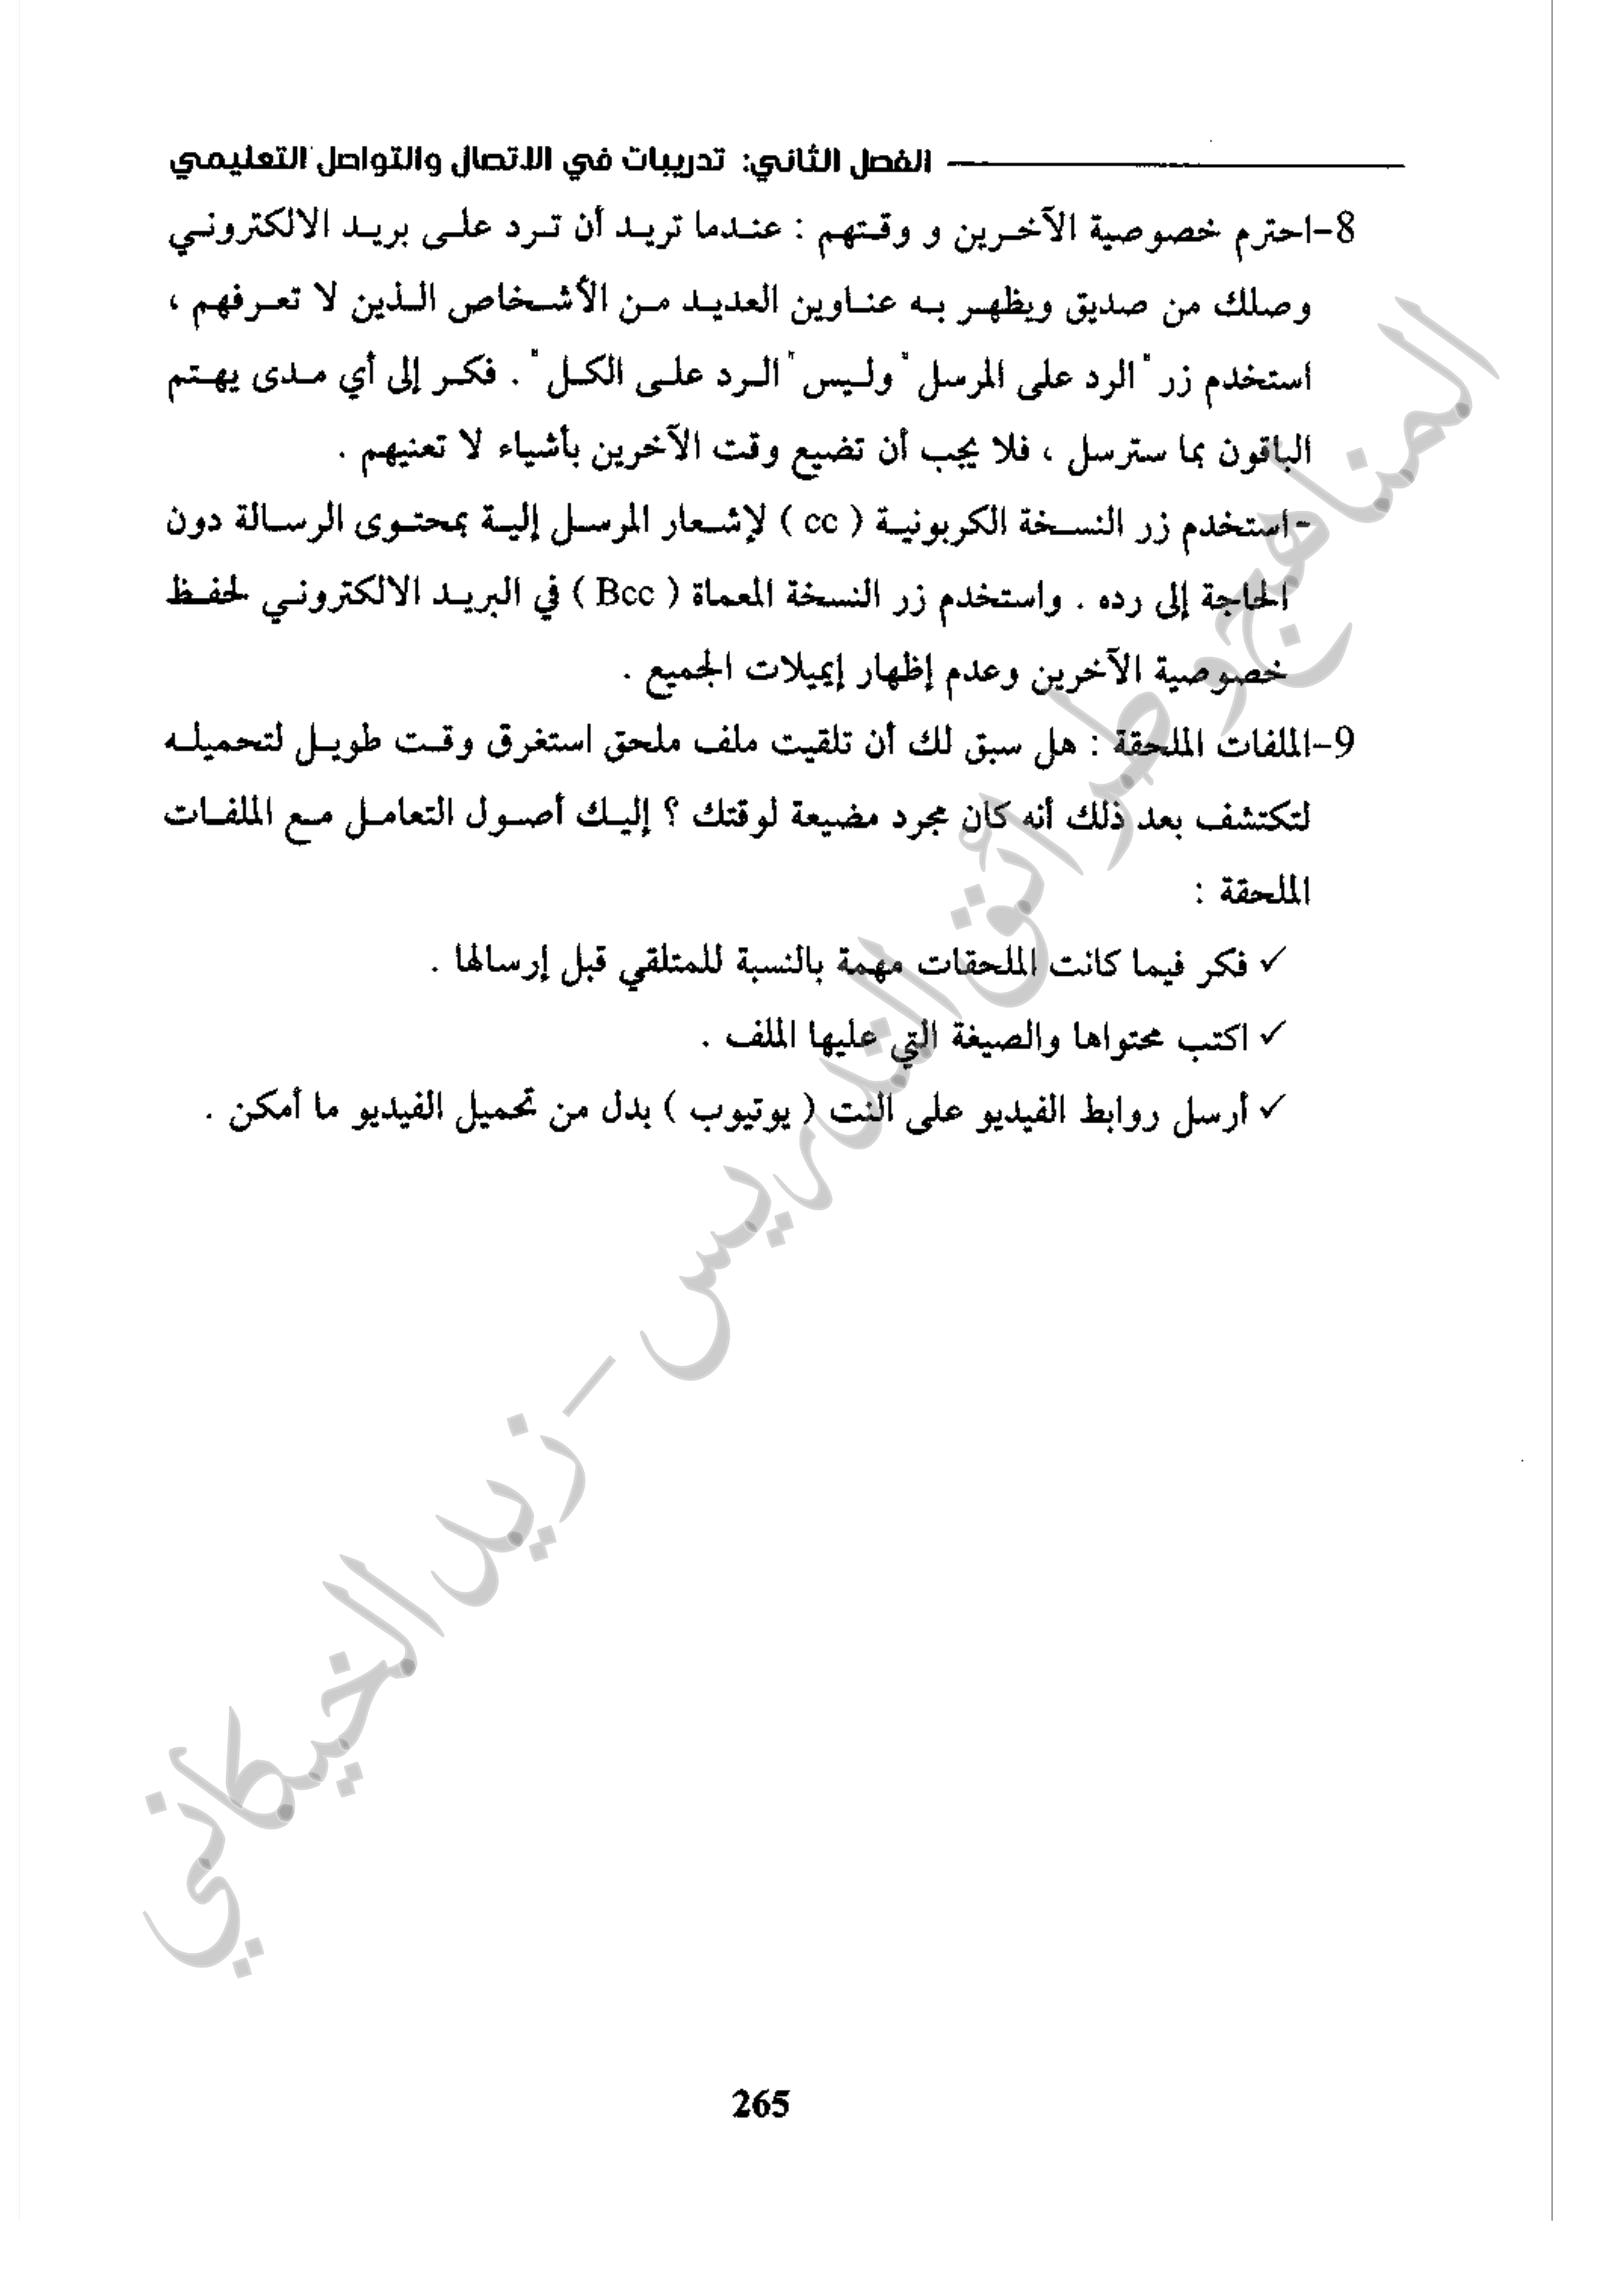 الفصل الثاني: تدريبات في الاتصال والتواصل التعليمي
8-احترم خصوصية الآخرين و وقتهم : عندما تريد أن ترد على بريد الالكتروني
وصلك من صديق ويظهر به عناوين العديد من الأشخاص الذين لا تعرفهم ،
استخدم زر "الرد على المرسل" وليس "الرد على الكل" . فكر إلى أي مدى يهتم
الباقون بما سترسل ، فلا يجب أن تضيع وقت الآخرين بأشياء لا تعنيهم .
-استخدم زر النسخة الكربونية ( cc ) لإشعار المرسل إلية بمحتوى الرسالة دون
الحاجة إلى رده . واستخدم زر النسخة المعماة ( Bcc ) في البريد الالكتروني لحفظ
خصوصية الآخرين وعدم إظهار إيميلات الجميع .
9-الملفات الملحقة : هل سبق لك أن تلقيت ملف ملحق استغرق وقت طويل لتحميله
لتكتشف بعد ذلك أنه كان مجرد مضيعة لوقتك ؟ إليك أصول التعامل مع الملفات
الملحقة :
✓ فكر فيما كانت الملحقات مهمة بالنسبة للمتلقي قبل إرسالها .
✓ اكتب محتواها والصيغة التي عليها الملف .
✓ أرسل روابط الفيديو على النت ( يوتيوب ) بدل من تحميل الفيديو ما أمكن .
المناهج وطرائق التدريس - زيد الخيكاني
265